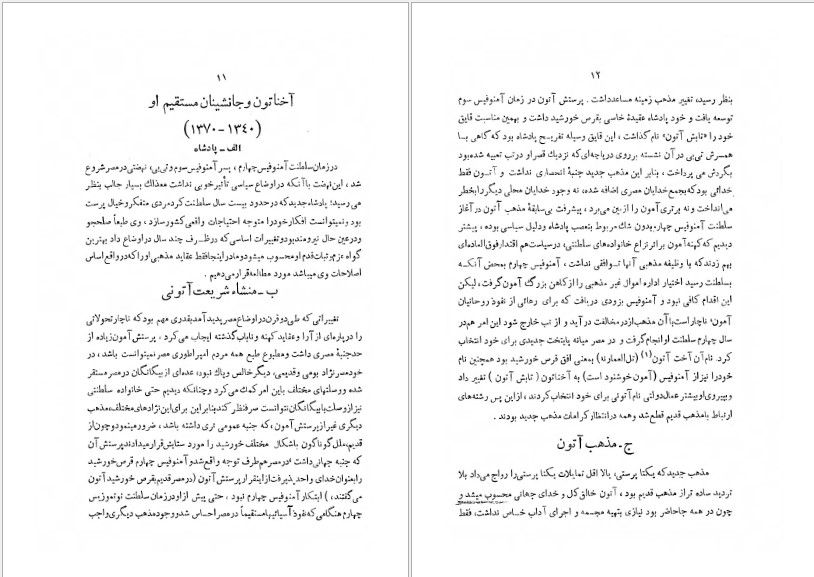 ۱۱
آخناتون و جانشینان مستقیم او
(۱۳۴۰-۱۳۷۰)
الف - پادشاه
در زمان سلطنت آمنوفیس چهارم ، پسر آمنوفیس سوم و تی‌یی، نهضتی در مصر شروع
شد ، این نهضت با آنکه در اوضاع سیاسی تأثیر خوبی نداشت معذالك بسیار جالب بنظر
می رسید؛ پادشاه جدید که در حدود بیست سال سلطنت کرد مردی متفکر و خیال پرست
بود و نمیتوانست افکار خود را متوجه احتیاجات واقعی کشور سازد ، وی طبعاً صلحجو
و در عین حال نیرومند بود و تغییرات اساسی که در ظرف چند سال در اوضاع داد بهترین
گواه عزم و ثبات قدم او محسوب میشود و ما در اینجا فقط عقاید مذهبی او را که در واقع اساس
اصلاحات وی میباشد مورد مطالعه قرار می‌دهیم .
ب - منشاء شریعت آتونی
تغییراتی که طی دو قرن در اوضاع مصر پدید آمد بقدری مهم بود که ناچار تحولاتی
را در پاره‌ای از آرا و عقاید کهنه و نایاب گذشته ایجاب می کرد ، پرستش آمون زیاده از
حد جنبهٔ مصری داشت و مطبوع طبع همه مردم امپراطوری مصر نمیتوانست باشد ، در
خود مصر نژاد بومی و قدیمی، دیگر خالص و پاك نبود، عده‌ای از بیگانگان در مصر مستقر
شده و وصلتهای مختلف باین امر کمك می کرد و چنانکه دیدیم حتی خانواده سلطنتی
نیز از وصلت با بیگانگان نتوانست صرفنظر کند بنابر این برای این نژادهای مختلف، مذهب
دیگری غیر از پرستش آمون، که جنبه عمومی تری داشته باشد ، ضرور مینمود و چون از
قدیم، ملل گوناگون باشکال مختلف خورشید را مورد ستایش قرار میدادند پرستش آن
که جنبه جهانی داشت در مصر هم طرف توجه واقع شد و آمنوفیس چهارم قرص خورشید
را بعنوان خدای واحد پذیرفت از اینقرار پرستش آتون (در مصر قدیم بقرص خورشید آتون
می گفتند، ) ابتکار آمنوفیس چهارم نبود ، حتی پیش از او در زمان سلطنت توتموزیس
چهارم هنگامی که نفوذ آسیائیها مستقیماً در مصر احساس شد وجود مذهب دیگری واجب
۱۲
بنظر رسید، تغییر مذهب زمینه مساعد داشت . پرستش آتون در زمان آمنوفیس سوم
توسعه یافت و خود پادشاه عقیدهٔ خاصی بقرص خورشید داشت و بهمین مناسبت قایق
خود را «تابش آتون» نام گذاشت ، این قایق وسیله تفریح پادشاه بود که گاهی بــا
همسرش تی‌یی در آن نشسته بر روی دریاچه‌ای که نزدیك قصر او در تب تعبیه شده بود
بگردش می پرداخت ، بنابر این مذهب جدید جنبهٔ انحصاری نداشت و آتــون فقط
خدائی بود که بجمع خدایان مصری اضافه شده، نه وجود خدایان محلی دیگر را بخطر
می‌انداخت و نه برتری آمون را از بین می‌برد ، پیشرفت بی‌سابقهٔ مذهب آتون در آغاز
سلطنت آمنوفیس چهارم بدون شك مربوط بتعصب پادشاه و دلایل سیاسی بوده ، بیشتر
دیدیم که کهنه آمون بر اثر نزاع خانواده‌های سلطنتی، در سیاست هم اقتدار فوق العاده‌ای
بهم زدند که با وظیفه مذهبی آنها تــوافقی نداشت ، آمنوفیس چهارم بمحض آنکــه
بسلطنت رسید اختیار اداره اموال غیر مذهبی را از کاهن بزرگ آمون گرفت ، لیکن
این اقدام کافی نبود و آمنوفیس بزودی دریافت که برای رهائی از نفوذ روحانیان
آمون، ناچار است با آن مذهب از در مخالفت در آید و از تب خارج شود این امر هم در
سال چهارم سلطنت او انجام گرفت و در مصر میانه پایتخت جدیدی برای خود انتخاب
کرد. نام آن آخت آتون (۱) (تل‌العمارنه) بمعنی افق قرص خورشید بود همچنین نام
خود را نیز از آمنوفیس (آمون خوشنود است) به آخناتون ( تابش آتون ) تغییر داد
و بپیروی او بیشتر عمال دولتی نام آتونی برای خود انتخاب کردند ، از این پس رشته‌های
ارتباط با مذهب قدیم قطع شد و همه در انتظار کرامات مذهب جدید بودند .
ج - مذهب آتون
مذهب جدید که یکتا پرستی، یا لااقل تمایلات یکتا پرستی را رواج می‌داد بلا
تردید ساده تر از مذهب قدیم بود ، آتون خالق کل و خدای جهانی محسوب میشد و
چون در همه جا حاضر بود نیازی بتهیه مجسمه و اجرای آداب خــاص نداشت، فقط